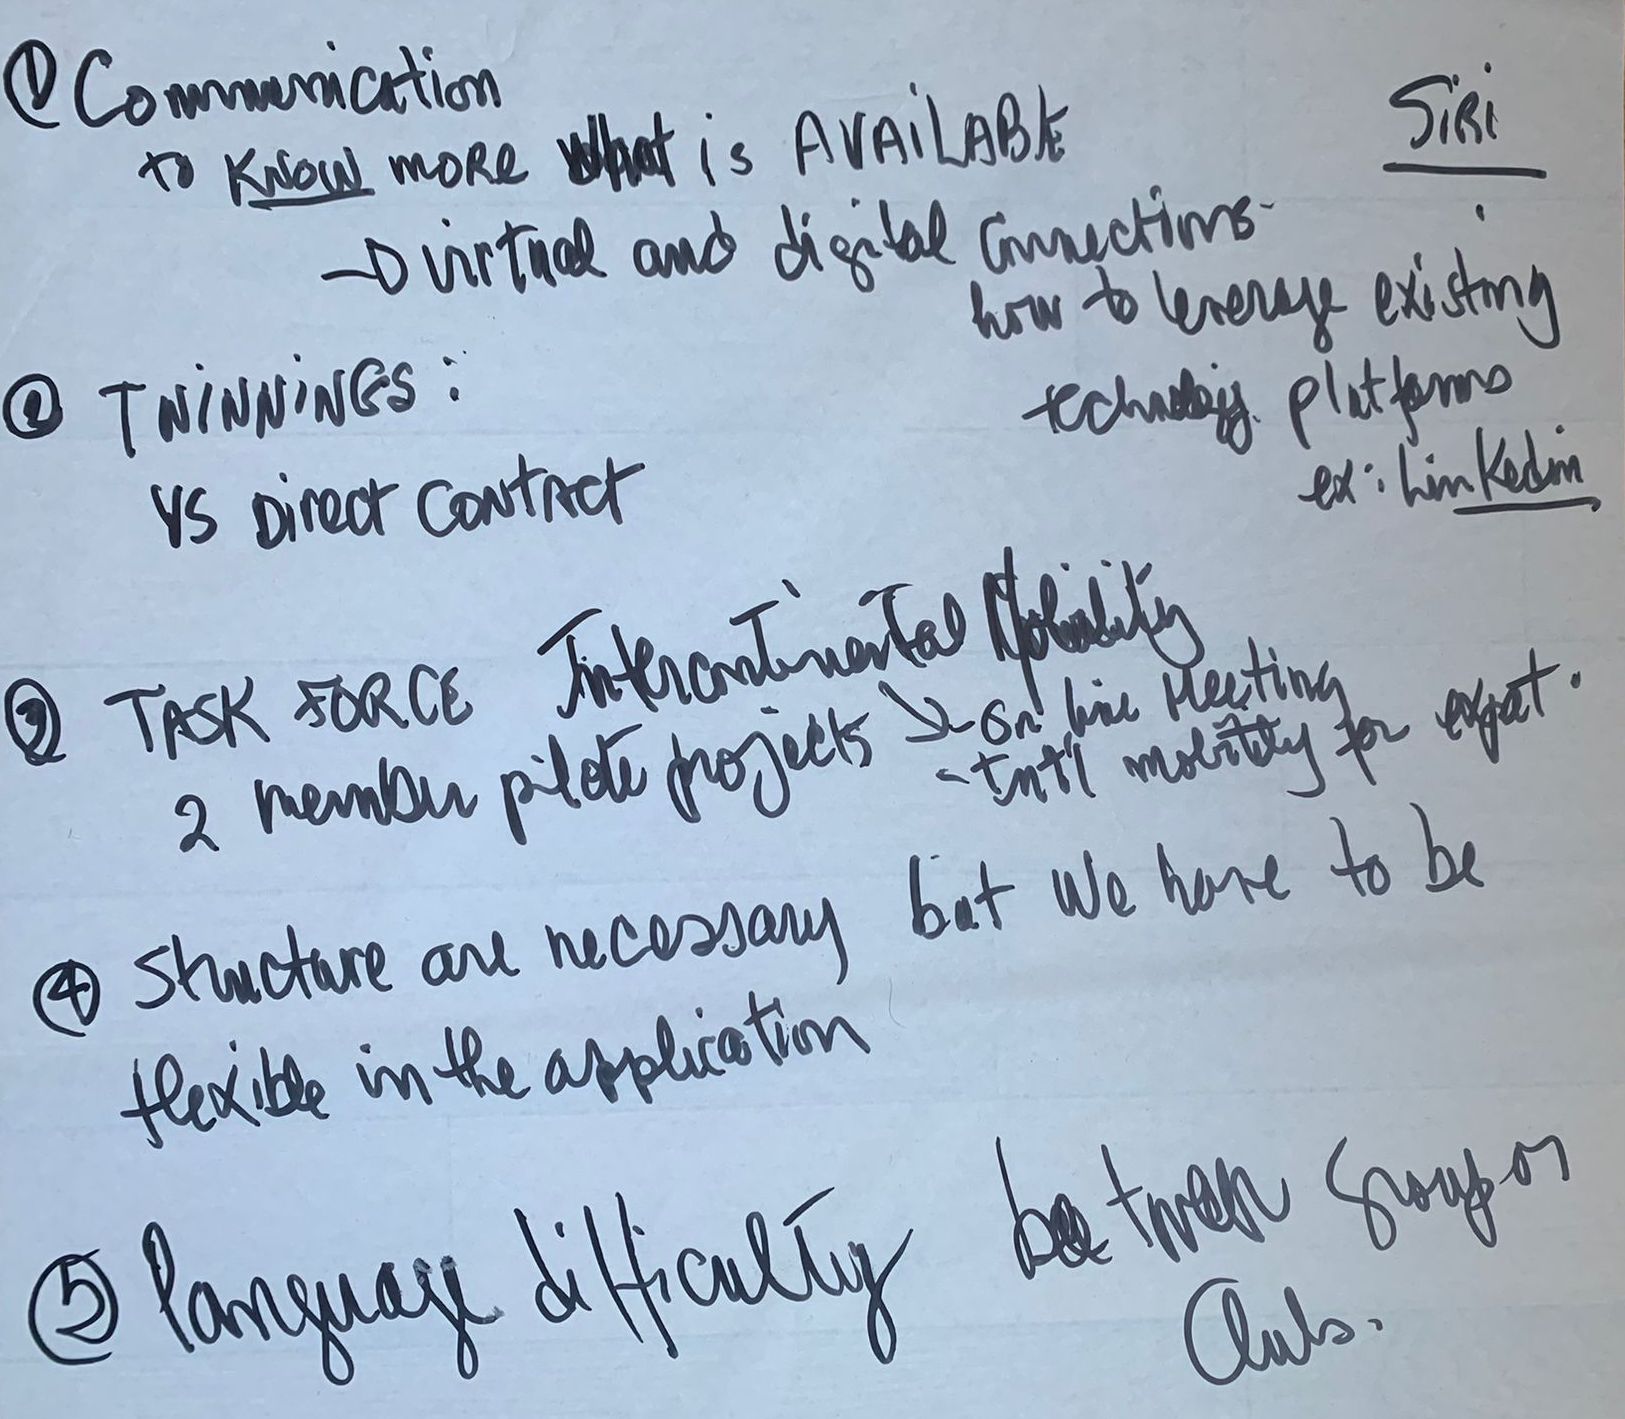 ① Communication
SiRi
to KNOW MORE what is AVAiLABLE
→ virtual and digital connections
how to leverage existing
technology platforms
ex: Linkedin
② TWiNNiNGS:
VS Direct CONTACT
③ TASK FORCE Intercontinental Mobility
2 member pilote projects → - On line Meeting
- Int'l mobility for expat.
④ Structure are necessary but we have to be
flexible in the application
⑤ language difficulty between group or
Clubs.